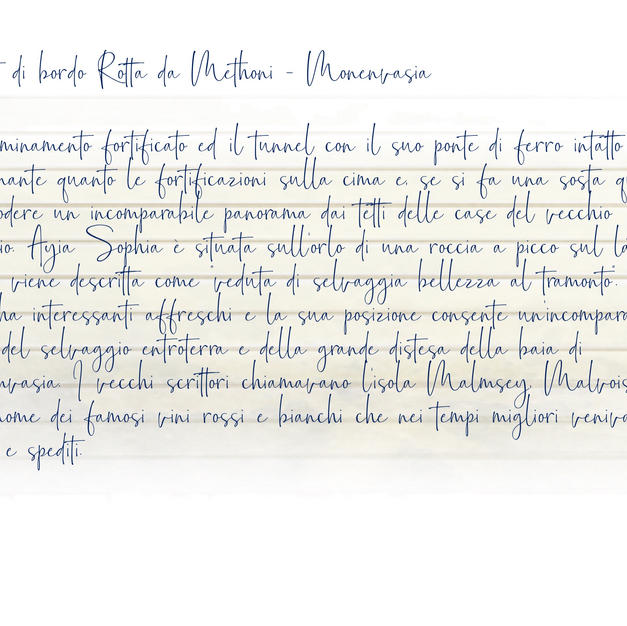 di bordo Rotta da Methoni - Monenvasia
minamento fortificato ed il tunnel con il suo ponte di ferro intatto
nante quanto le fortificazioni sulla cima e, se si fa una sosta q
odere un incomparabile panorama dai tetti delle case del vecchio
io. Ayia Sophia è situata sull'orlo di una roccia a picco sul la
viene descritta come veduta di selvaggia bellezza al tramonto.
ha interessanti affreschi e la sua posizione consente un'incompara
del selvaggio entroterra e della grande distesa della baia di
nvasia. I vecchi scrittori chiamavano l'isola Malmsey, Malvois
nome dei famosi vini rossi e bianchi che nei tempi migliori veniva
e spediti.